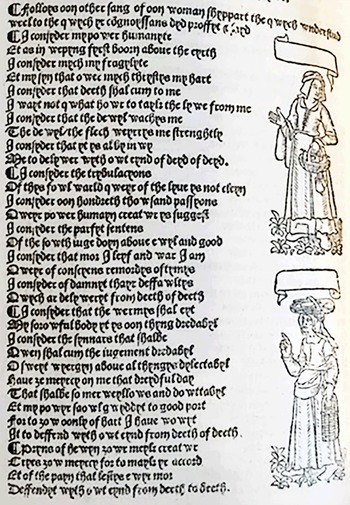 Follows oon other sang of oon woman sheppart the qwech wnderstud
weel to the qwych re cognoissans ded proffet
I consider my power humanete
Et as in weping fyrst boorn above the erth
I consider mech my fragelyte
Et my syn that o wer mech thrystes my hart
I consider that deeth shal cum to me
I wat not qwhat howr to take the lywe from me
I consider that the dewel waches me
The dewel, the flech werres me strenghtly
I consider that yt es al bw in wy
We to delywer wyth owt eynd of deyd of deyd.
I consider the trybulacyons
Of thys fowl warld qwere of the lywe es not cleyn
I consider oon hondreth thowsand passyons
Qwere power humayn creatwr es suggest
I consider the parfyt sentens
Of the sowth iuge doyn above ewyl and good
I consider that mor I lyef and war I am
Qwere of consciens remordes oftymes
I consider of damnet thayr deffawltes
Qwych ar delywert from deeth of deeth
I consider that the wermes shal eyt
My sorowful body yt es oon thyng dredabyl
I consider the synnars that shalbe
Qwen shal cum the iugement dredabyl
O swyt wergyn abowe al thynges delectabyl
Have ze mercy on me that dredful day
That shalbe so merweyllows and dowttabyl
Et my power sowl gwyd to good port
For to zow oonly of hart I have wowyt
It to deffend wyth owt eynd from deeth of deeth.
Prens of hewyn zowr werke creatwr
Cryes zow mercy for to make yr accord
Et of the payn that
Deffendyt wyth owt eynd from deeth to deeth.